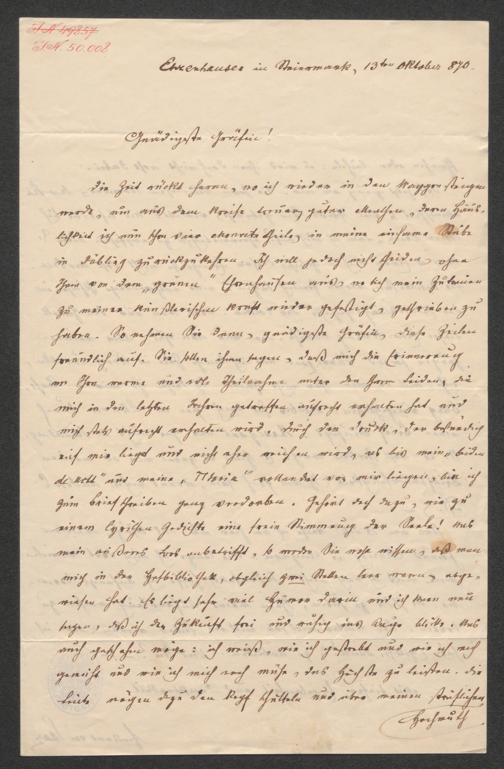 I.N. 49857
I.N. 50.008
Ehrenhausen in Steiermark, 13ten Oktober 870.
Gnädigste Gräfin!
Die Zeit rückt heran, wo ich wieder in den Waggon steigen
werde, um aus dem Kreise treuer, guter Menschen, deren Häus-
lichkeit ich nun schon vier Monate theile, in meine einsame Stube
in Döbling zurückzukehren. Ich will jedoch nicht scheiden, ohne
Ihnen von dem „grünen“ Ehrenhausen aus, wo sich mein Zutrauen
zu meiner künstlerischen Kraft wieder gefestigt, geschrieben zu
haben. So nehmen Sie denn, gnädigste Gräfin, diese Zeilen
freundlich auf. Sie sollen Ihnen sagen, daß mich die Erinnerung
an Ihre warme und edle Theilnahme unter den schweren Leiden, die
mich in den letzten Jahren getroffen aufrecht erhalten hat und
mich stets aufrecht erhalten wird. Durch den Druck, der beständig
auf mir liegt und nicht eher weichen wird, als bis meine beiden
und meine vollendet vor mir liegen, bin ich
zum Briefschreiben ganz verdorben. Gehört doch dazu, wie zu
einem lyrischen Gedichte eine freie Stimmung der Seele! Was
mein äußeres Los anbetrifft, so werden Sie wohl wissen, daß man
mich in der Hofbibliothek, obgleich zwei Stellen leer waren, abge-
wiesen hat. Es liegt sehr viel Humor darin und ich kann nur
sagen, daß ich der Zukunft frei und ruhig ins Auge blicke. Was
auch geschehen möge: ich weiß, wie ich gestrebt und wie ich mich
gemüht und wie ich mich noch mühe, das Höchste zu leisten. Die
Leute mögen dazu den Kopf schütteln und über meinen sträflichen
Hochmuth